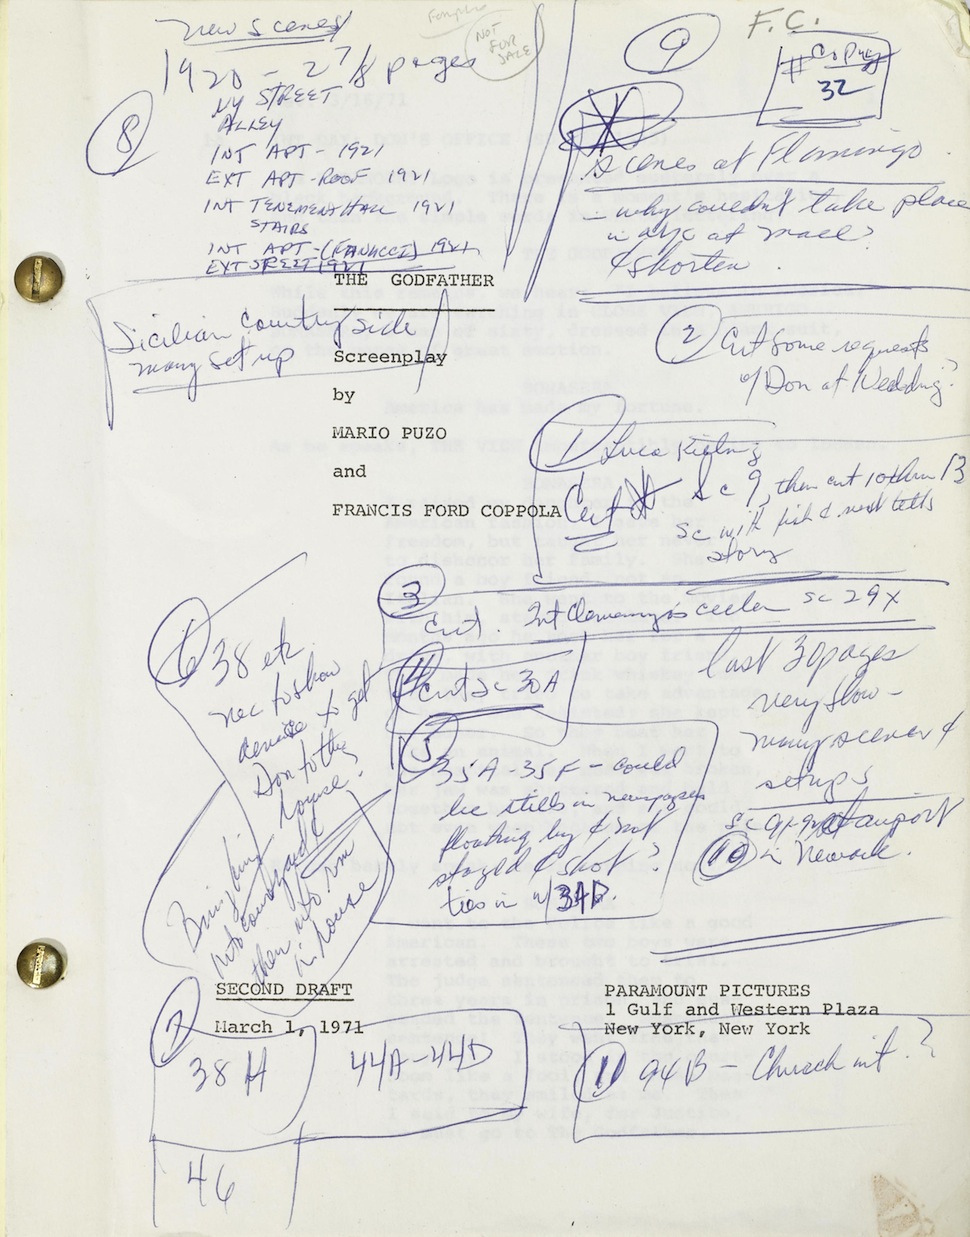 New Scenes
1920 - 2 7/8 pages
8
NY STREET
ALLEY
INT APT - 1921
EXT APT - ROOF 1921
INT TENEMENT HALL 1921
STAIRS
INT APT - (FANUCCI) 1921
EXT STREET 1921
NOT
FOR
SALE
F.C.
# Copy
32
9
Scenes at Flamingo
- why couldn't take place
in NYC at mall?
& shorten
THE GODFATHER
Sicilian Countryside
many set up
Screenplay
by
MARIO PUZO
and
FRANCIS FORD COPPOLA
2 Cut some requests
of Don at Wedding?
1 Luca Killing
Cut Sc 9, then cut to
Sc with fish & vest tells
story
3
Cut Int Clemenza's cellar Sc 29X
4
Cut Sc 30A
5
35A-35F - could
be stills in newspapers
floating by & not
staged & shot?
ties in w/
6
38 etc
nec to show
devise to get
Don to the
house?
Bring him
into courtyard &
then into rm
in house
last 30 pages
very slow -
many scenes &
setups
airport
10 in Newark.
SECOND DRAFT
March 1, 1971
PARAMOUNT PICTURES
1 Gulf and Western Plaza
New York, New York
7
38 H
44A-44D
46
11 94B - Church int ?